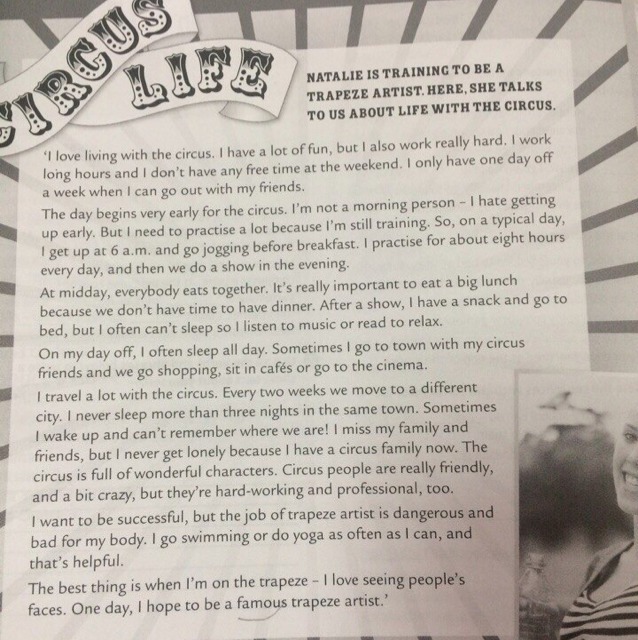 CIRCUS
LIFE
NATALIE IS TRAINING TO BE A
TRAPEZE ARTIST. HERE, SHE TALKS
TO US ABOUT LIFE WITH THE CIRCUS.
'I love living with the circus. I have a lot of fun, but I also work really hard. I work
long hours and I don't have any free time at the weekend. I only have one day off
a week when I can go out with my friends.
The day begins very early for the circus. I'm not a morning person – I hate getting
up early. But I need to practise a lot because I'm still training. So, on a typical day,
I get up at 6 a.m. and go jogging before breakfast. I practise for about eight hours
every day, and then we do a show in the evening.
At midday, everybody eats together. It's really important to eat a big lunch
because we don't have time to have dinner. After a show, I have a snack and go to
bed, but I often can't sleep so I listen to music or read to relax.
On my day off, I often sleep all day. Sometimes I go to town with my circus
friends and we go shopping, sit in cafés or go to the cinema.
I travel a lot with the circus. Every two weeks we move to a different
city. I never sleep more than three nights in the same town. Sometimes
I wake up and can't remember where we are! I miss my family and
friends, but I never get lonely because I have a circus family now. The
circus is full of wonderful characters. Circus people are really friendly,
and a bit crazy, but they're hard-working and professional, too.
I want to be successful, but the job of trapeze artist is dangerous and
bad for my body. I go swimming or do yoga as often as I can, and
that's helpful.
The best thing is when I'm on the trapeze – I love seeing people's
faces. One day, I hope to be a famous trapeze artist.'